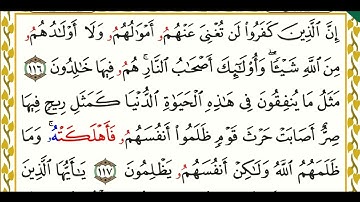 إِنَّ ٱلَّذِينَ كَفَرُوا۟ لَن تُغْنِىَ عَنْهُمُۥ أَمْوَٰلُهُمُۥ وَلَآ أَوْلَٰدُهُمُۥ
مِنَ ٱللَّهِ شَيْـًٔا ۖ وَأُو۟لَٰٓئِكَ أَصْحَٰبُ ٱلنَّارِ ۚ هُمُۥ فِيهَا خَٰلِدُونَ ١١٦
مَثَلُ مَا يُنفِقُونَ فِى هَٰذِهِ ٱلْحَيَوٰةِ ٱلدُّنْيَا كَمَثَلِ رِيحٍ فِيهَا
صِرٌّ أَصَابَتْ حَرْثَ قَوْمٍ ظَلَمُوٓا۟ أَنفُسَهُمُۥ فَأَهْلَكَتْهُۥ ۚ وَمَا
ظَلَمَهُمُ ٱللَّهُ وَلَٰكِنْ أَنفُسَهُمُۥ يَظْلِمُونَ ١١٧ يَٰٓأَيُّهَا ٱلَّذِينَ